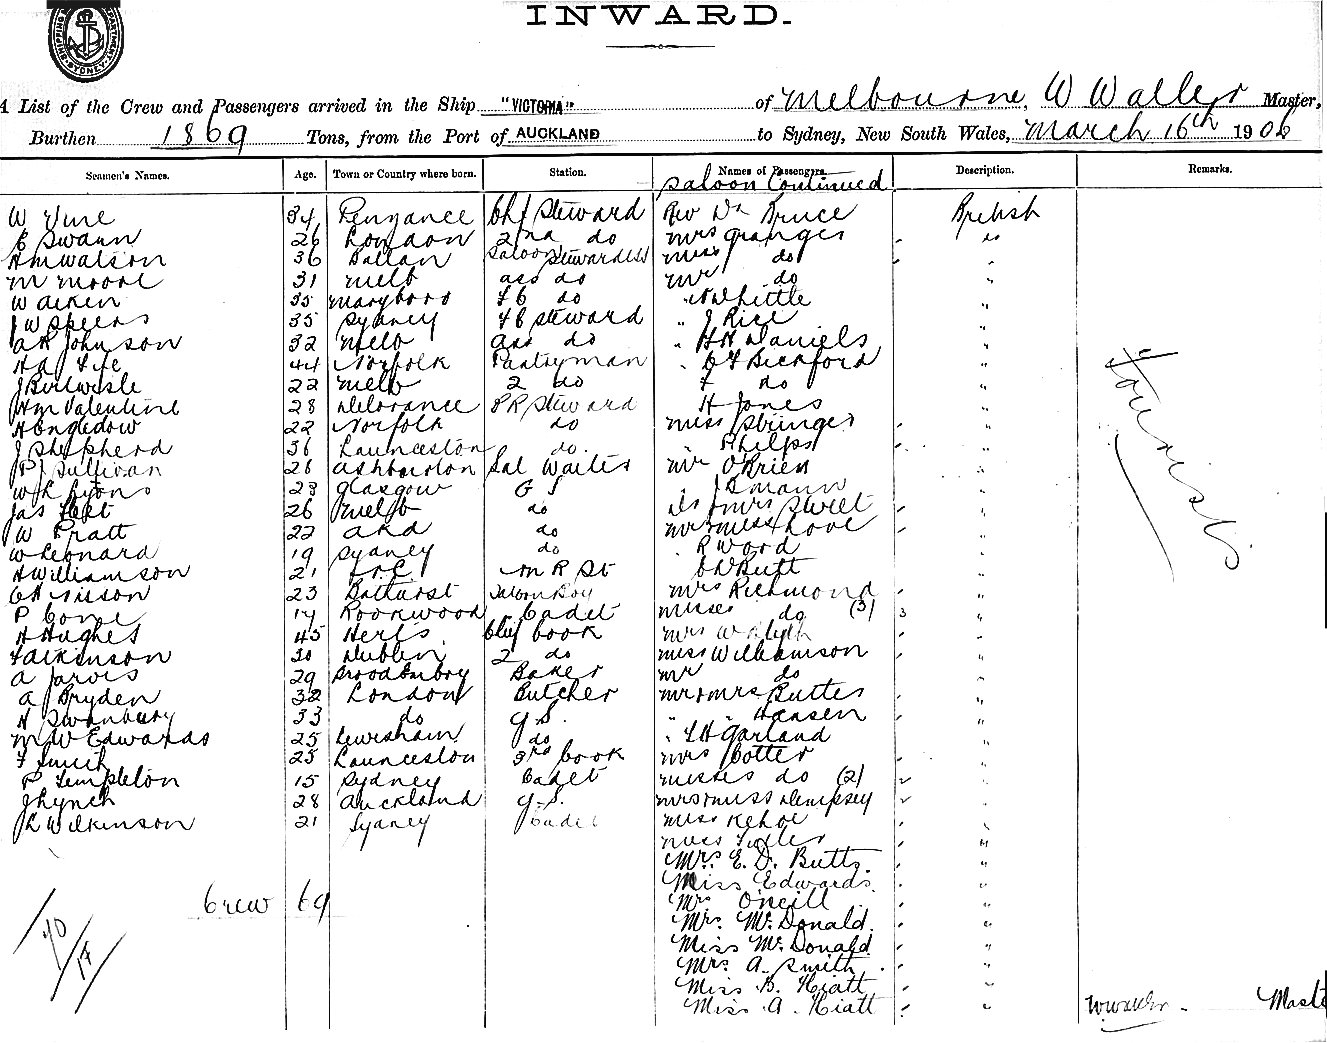 INWARD.
A List of the Crew and Passengers arrived in the Ship "VICTORIA" of Melbourne, W Waller Master,
Burthen 1869 Tons, from the Port of AUCKLAND to Sydney, New South Wales, March 16th 1906
Seamen's Names. Age. Town or Country where born. Station. Names of Passengers. Description. Remarks.
Saloon Continued
W Vine 34 Penzance Chf Steward Rev Dr Bruce British
E Swann 26 London 2nd do Mrs Granger do
H M Watson 36 Ballan Saloon Stewardess Miss do "
M Moore 31 Melb ass do Mr do "
W Aiken 35 Maryboro FC do Whittle "
J W Speers 35 Sydney FC Steward " J Rice "
A R Johnson 32 Melb ass do " H H Daniels "
44 Norfolk Pantryman " Bickford "
J Birtwisle 22 Melb 2 do " F do "
H M Valentine 28 Steward H Jones "
H Engledow 22 Norfolk do Miss Springer "
J Shepherd 36 Launceston do " Phelps "
P J Sullivan 28 Ashburton Sal Waiter Mr O'Brien "
W R Lyons 28 Glasgow G S Mann "
Jas 26 Melb do Mrs Sweet "
W Pratt 22 do Love "
W Leonard 19 Sydney do R Word "
H Williamson 21 M R St Butt "
23 Bathurst Saloon Boy Mrs Richmond "
P 17 Rookwood Cadet Misses do (3) 3 "
H Hughes 45 Herts Chf Cook Mrs W Blyth "
F Atkinson 30 Dublin 2 do Miss Williamson "
A Jarvis 29 Baker Mr do "
A Bryden 32 London Butcher Mr & Mrs Butter "
H Swanbury 33 do G.S. " " Hansen "
M W Edwards 25 Lewisham do " Garland "
F Smith 25 Launceston 3rd Cook Mrs Cotter "
P Templeton 15 Sydney Cadet Misses do (2) "
J Lynch 28 Auckland G.S. Mrs & Miss Dempsey "
J L Wilkinson 21 Sydney Cadet Miss Kehoe "
Miss "
Mrs E. D. Butts. "
Miss Edwards. "
Crew 69 Mrs O'neill "
Mrs. McDonald. "
Miss McDonald "
Mrs A. Smith. "
Miss B. Hiatt "
Miss A. Hiatt "
Tourists
W Waller Maste